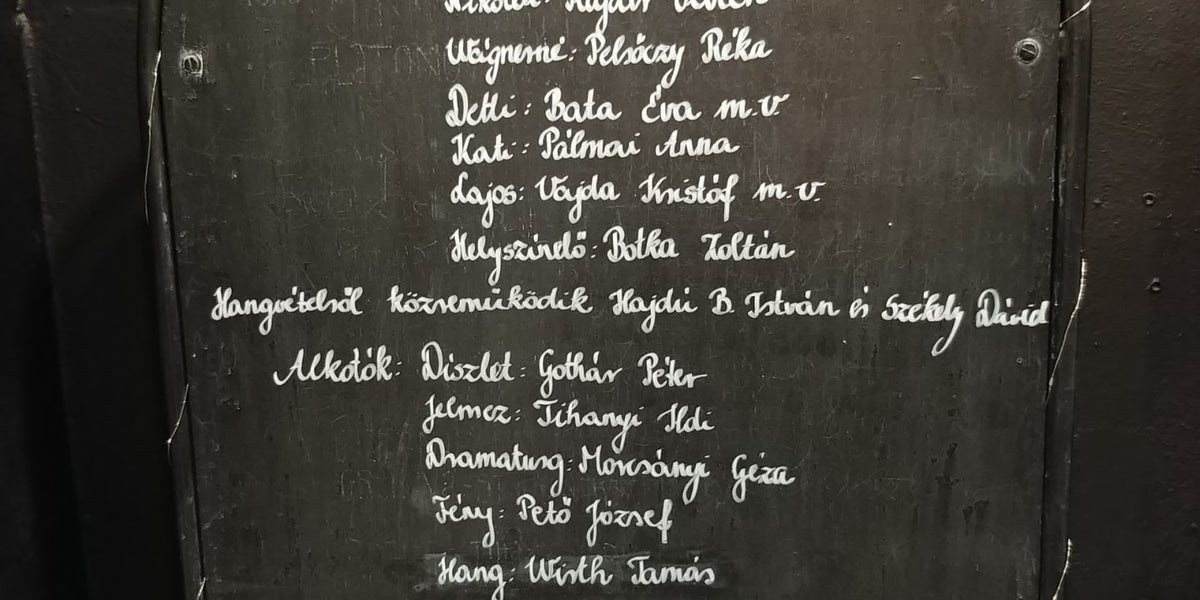 Wágnerné: Pelsőczy Réka
Detti: Bata Éva m.v
Kati: Pálmai Anna
Lajos: Vajda Kristóf m.v.
Helyszínelő: Botka Zoltán
Hangvételről közreműködik Hajdú B. István és Székely Dávid
Alkotók: Díszlet: Gothár Péter
Jelmez: Tihanyi Ildi
Dramaturg: Morcsányi Géza
Fény: Pető József
Hang: Wirth Tamás